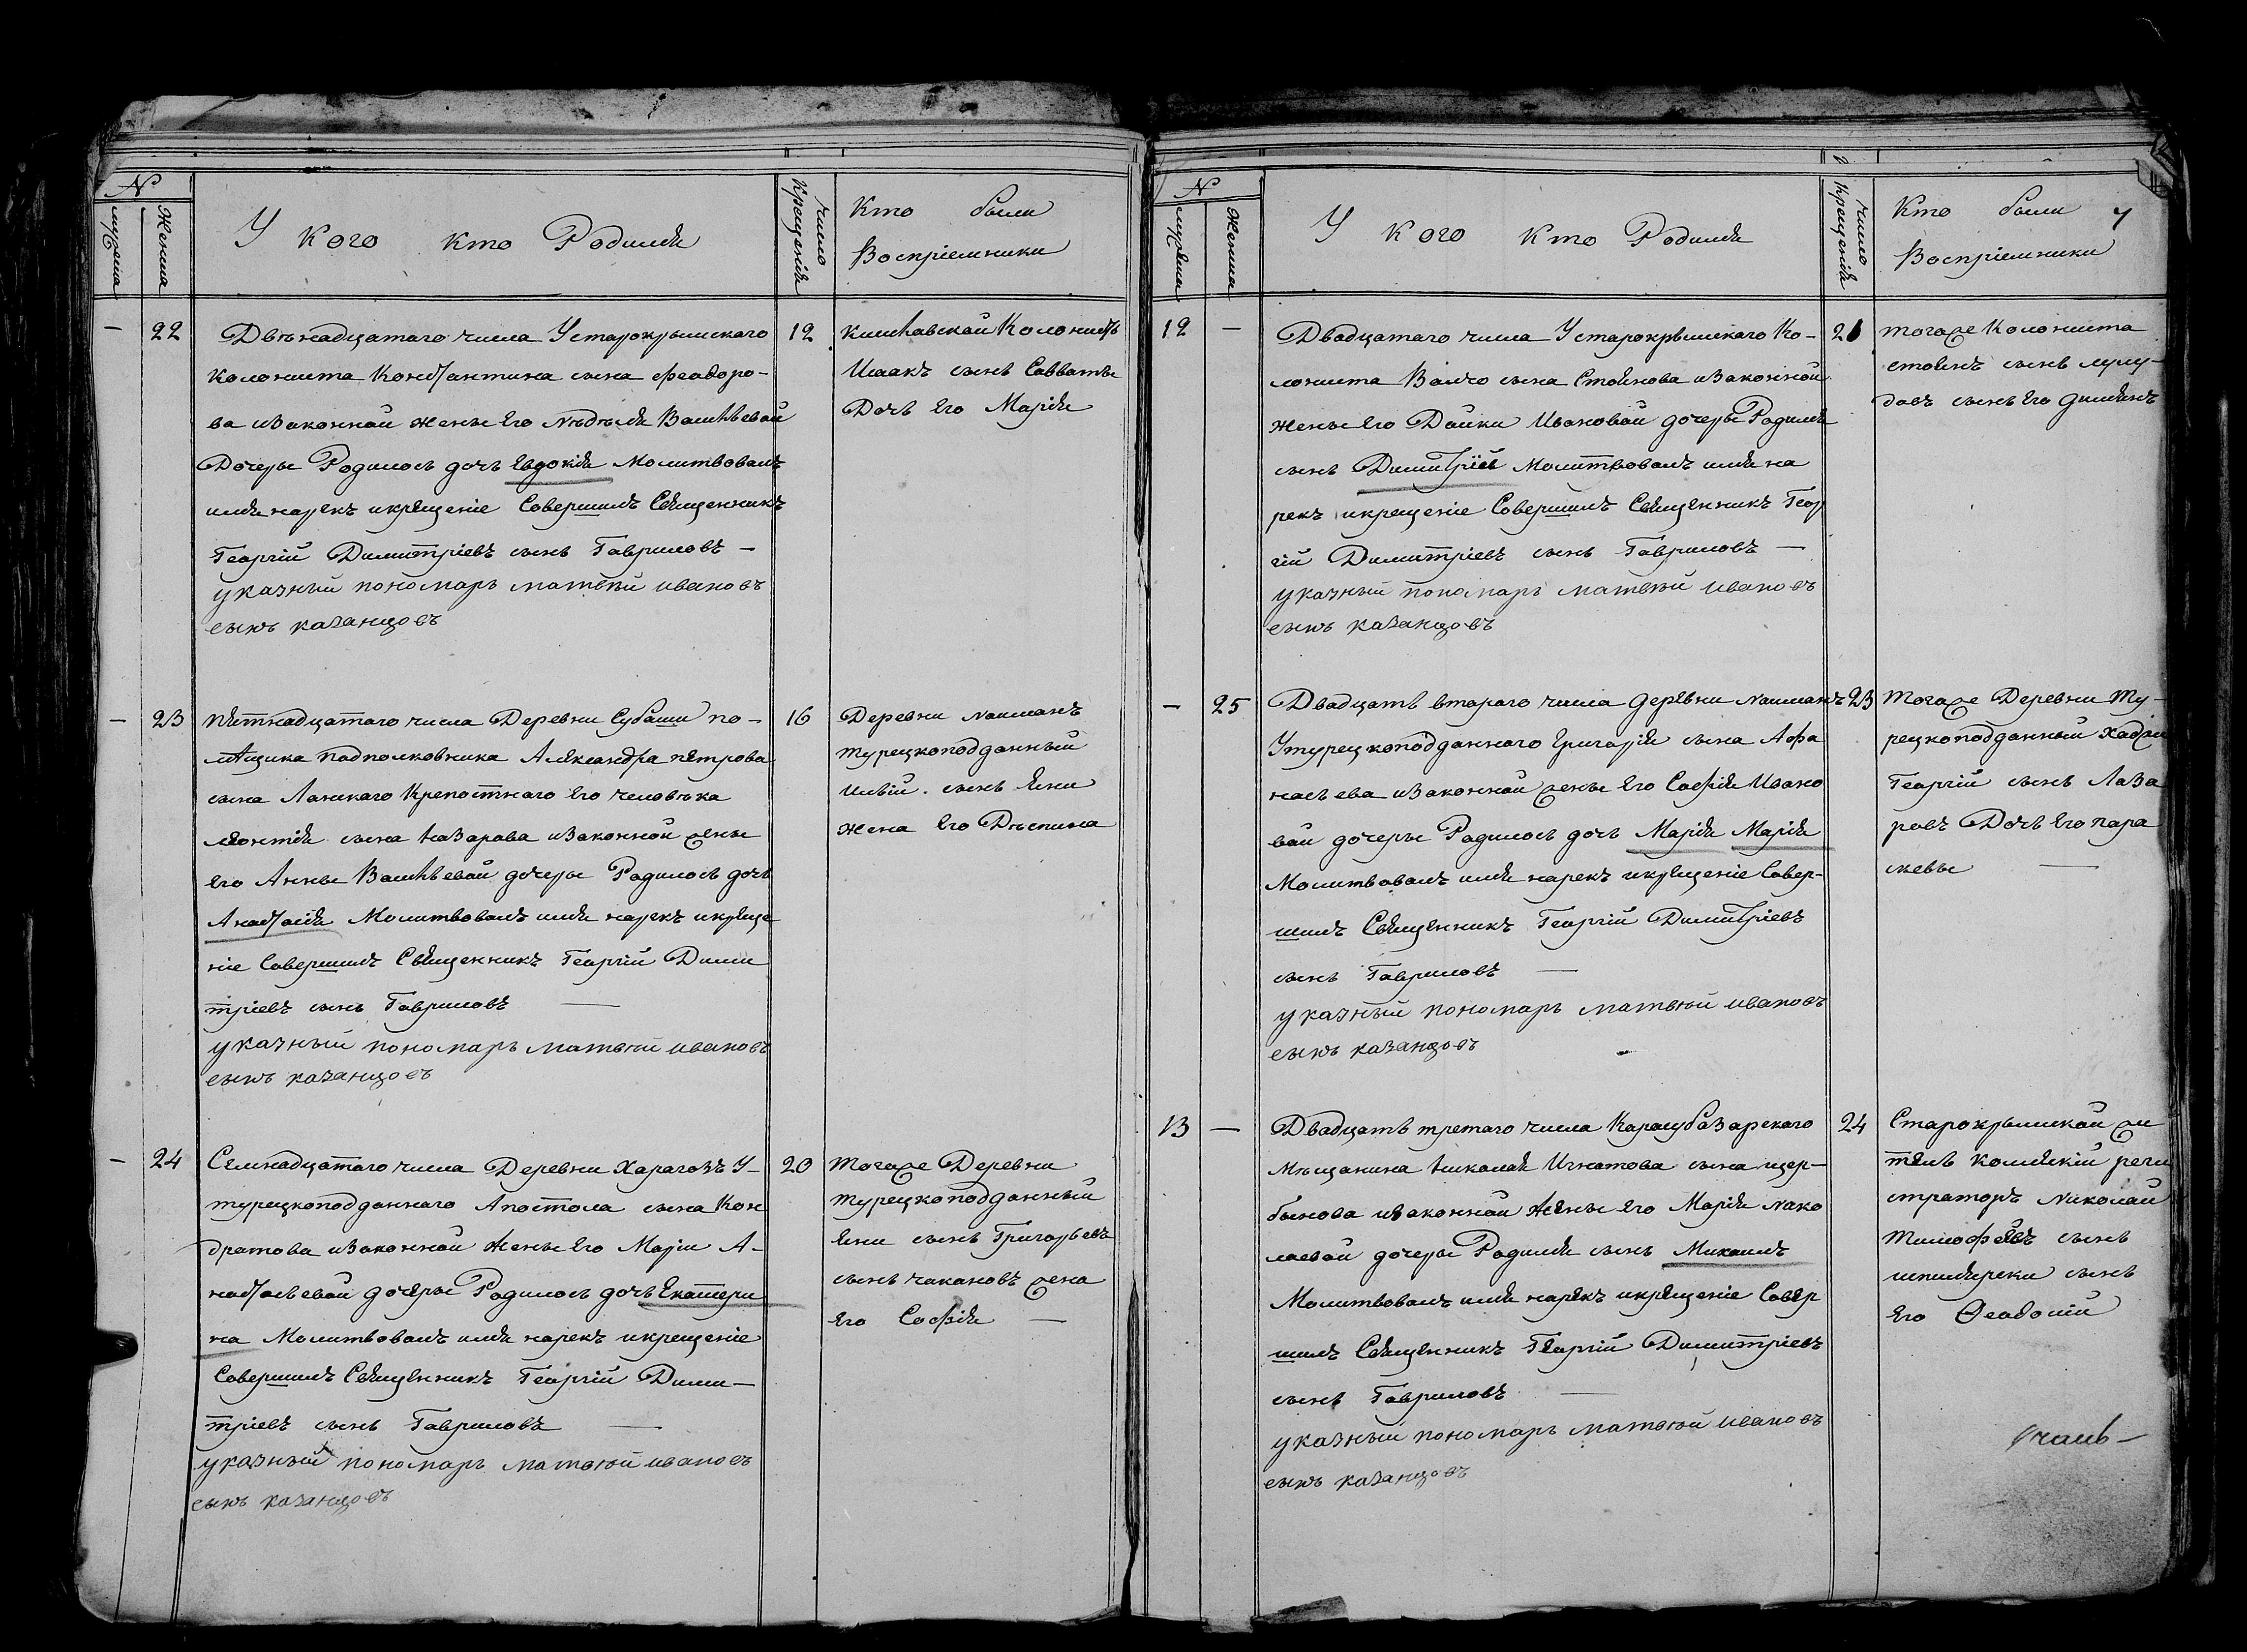 №
мужеска
Женска
У кого кто Родился
число
крещенія
Кто были
Воспріемники
— 22
Двѣнадцатаго числа Устарокрымскаго
Колониста Константина сына Феодоро-
ва изаконной жены Его Недѣли Васильевой
Дочеры Родилось дочь Евдокія Молитвовалъ
имя нарекъ икрещеніе Совершилъ Священникъ
Георгій Димитріевъ сынъ Гавриловъ —
указный пономарь матвѣй ивановъ
сынъ казанцовъ
12
Колонистъ
Исаакъ сынъ Савватѣ
Дочь Его Марія
— 23
пятнадцатаго числа Деревни Субаши по-
мѣщика Подполковника Александра петрова
сына Ланскаго Крепостнаго Его человѣка
леонтія сына Назарова изаконной жены
Его Анны Васильевой дочеры Родилось дочь
Анастасія Молитвовалъ имя нарекъ икреще
ніе Совершилъ Священникъ Георгій Дими
тріевъ сынъ Гавриловъ —
указный пономарь матвѣй ивановъ
сынъ казанцовъ
16
Деревни Наиманъ
турецкоподданный
илій сынъ Яни
жена Его Дѣспина
— 24
Семнадцатаго числа Деревни Харагозъ У-
турецкоподданнаго Апостола сына Кон
дратова изаконной жены Его Маріи А-
настасьевой дочеры Родилось дочь Екатери
на Молитвовалъ имя нарекъ икрещеніе
Совершилъ Священникъ Георгій Дими-
тріевъ сынъ Гавриловъ —
указный пономарь матвѣй ивановъ
сынъ казанцовъ
20
тогоже Деревни
турецкоподданный
Яни сынъ Григорьевъ
сынъ чакановъ жена
Его Софія —
№
мужеска
Женска
У кого кто Родился
число
крещенія
Кто были
Воспріемники
12 —
Двадцатаго числа Устарокрымскаго Ко-
лониста Валчо сына Стоянова изаконной
жены Его Дойки Ивановой дочеры Родился
сынъ Димитрій Молитвовалъ имя на
рекъ икрещеніе Совершилъ Священникъ Геор
гій Димитріевъ сынъ Гавриловъ —
указный пономарь матвѣй ивановъ
сынъ казанцовъ
21
тогоже Колониста
стоянъ сынъ
сынъ Его
— 25
Двадцать втораго числа деревни Наиманъ
Утурецкоподданнаго Григорія сына Афа
насьева изаконной жены Его Софія Ивано
вой дочеры Родилось дочь Марія Марія
Молитвовалъ имя нарекъ икрещеніе Совер-
шилъ Священникъ Георгій Димитріевъ
сынъ Гавриловъ —
указный пономарь матвѣй ивановъ
сынъ казанцовъ
23
тогоже Деревни Ту-
рецкоподданный Хаджи
Георгій сынъ Лаза
ровъ Дочь Его пара
скевы —
13 —
Двадцать третаго числа Карасубазарскаго
Мѣщанина николая Игнатова сына щер-
бынова изаконной жены Его Марія Нико
лаевой дочеры Родился сынъ Михаилъ
Молитвовалъ имя нарекъ икрещеніе Совер
шилъ Священникъ Георгій Димитріевъ
сынъ Гавриловъ —
указный пономарь матвѣй ивановъ
сынъ казанцовъ
24
Старокрымской жи
тель Колежскій реги
страторъ Николай
Тимофѣевъ сынъ
сынъ
Его Феодосій